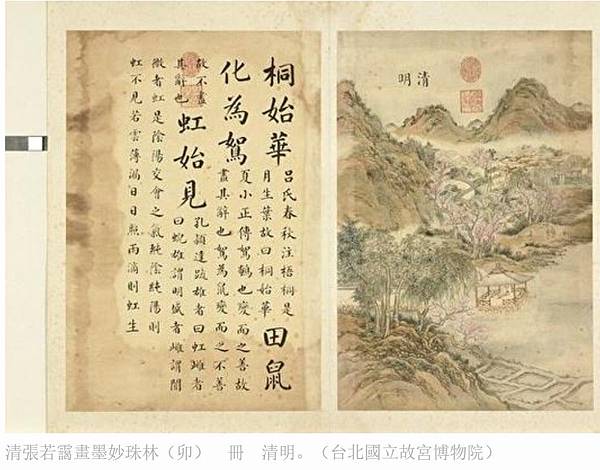 清明
桐始華
呂氏春秋注梧桐是
月生葉故曰桐始華
田鼠
化為鴽
夏小正傳鴽鵪也變而之善故
盡其辭也鴽為鼠變而之不善
故不盡
其辭也
虹始見
孔穎達疏雄者曰虹雌者
曰蜺雄謂明盛者雌謂闇
微者虹是陰陽交會之氣純陰純陽則
虹不見若雲薄漏日日照雨滴則虹生
清張若靄畫墨妙珠林（卯）　冊　清明。（台北國立故宮博物院）